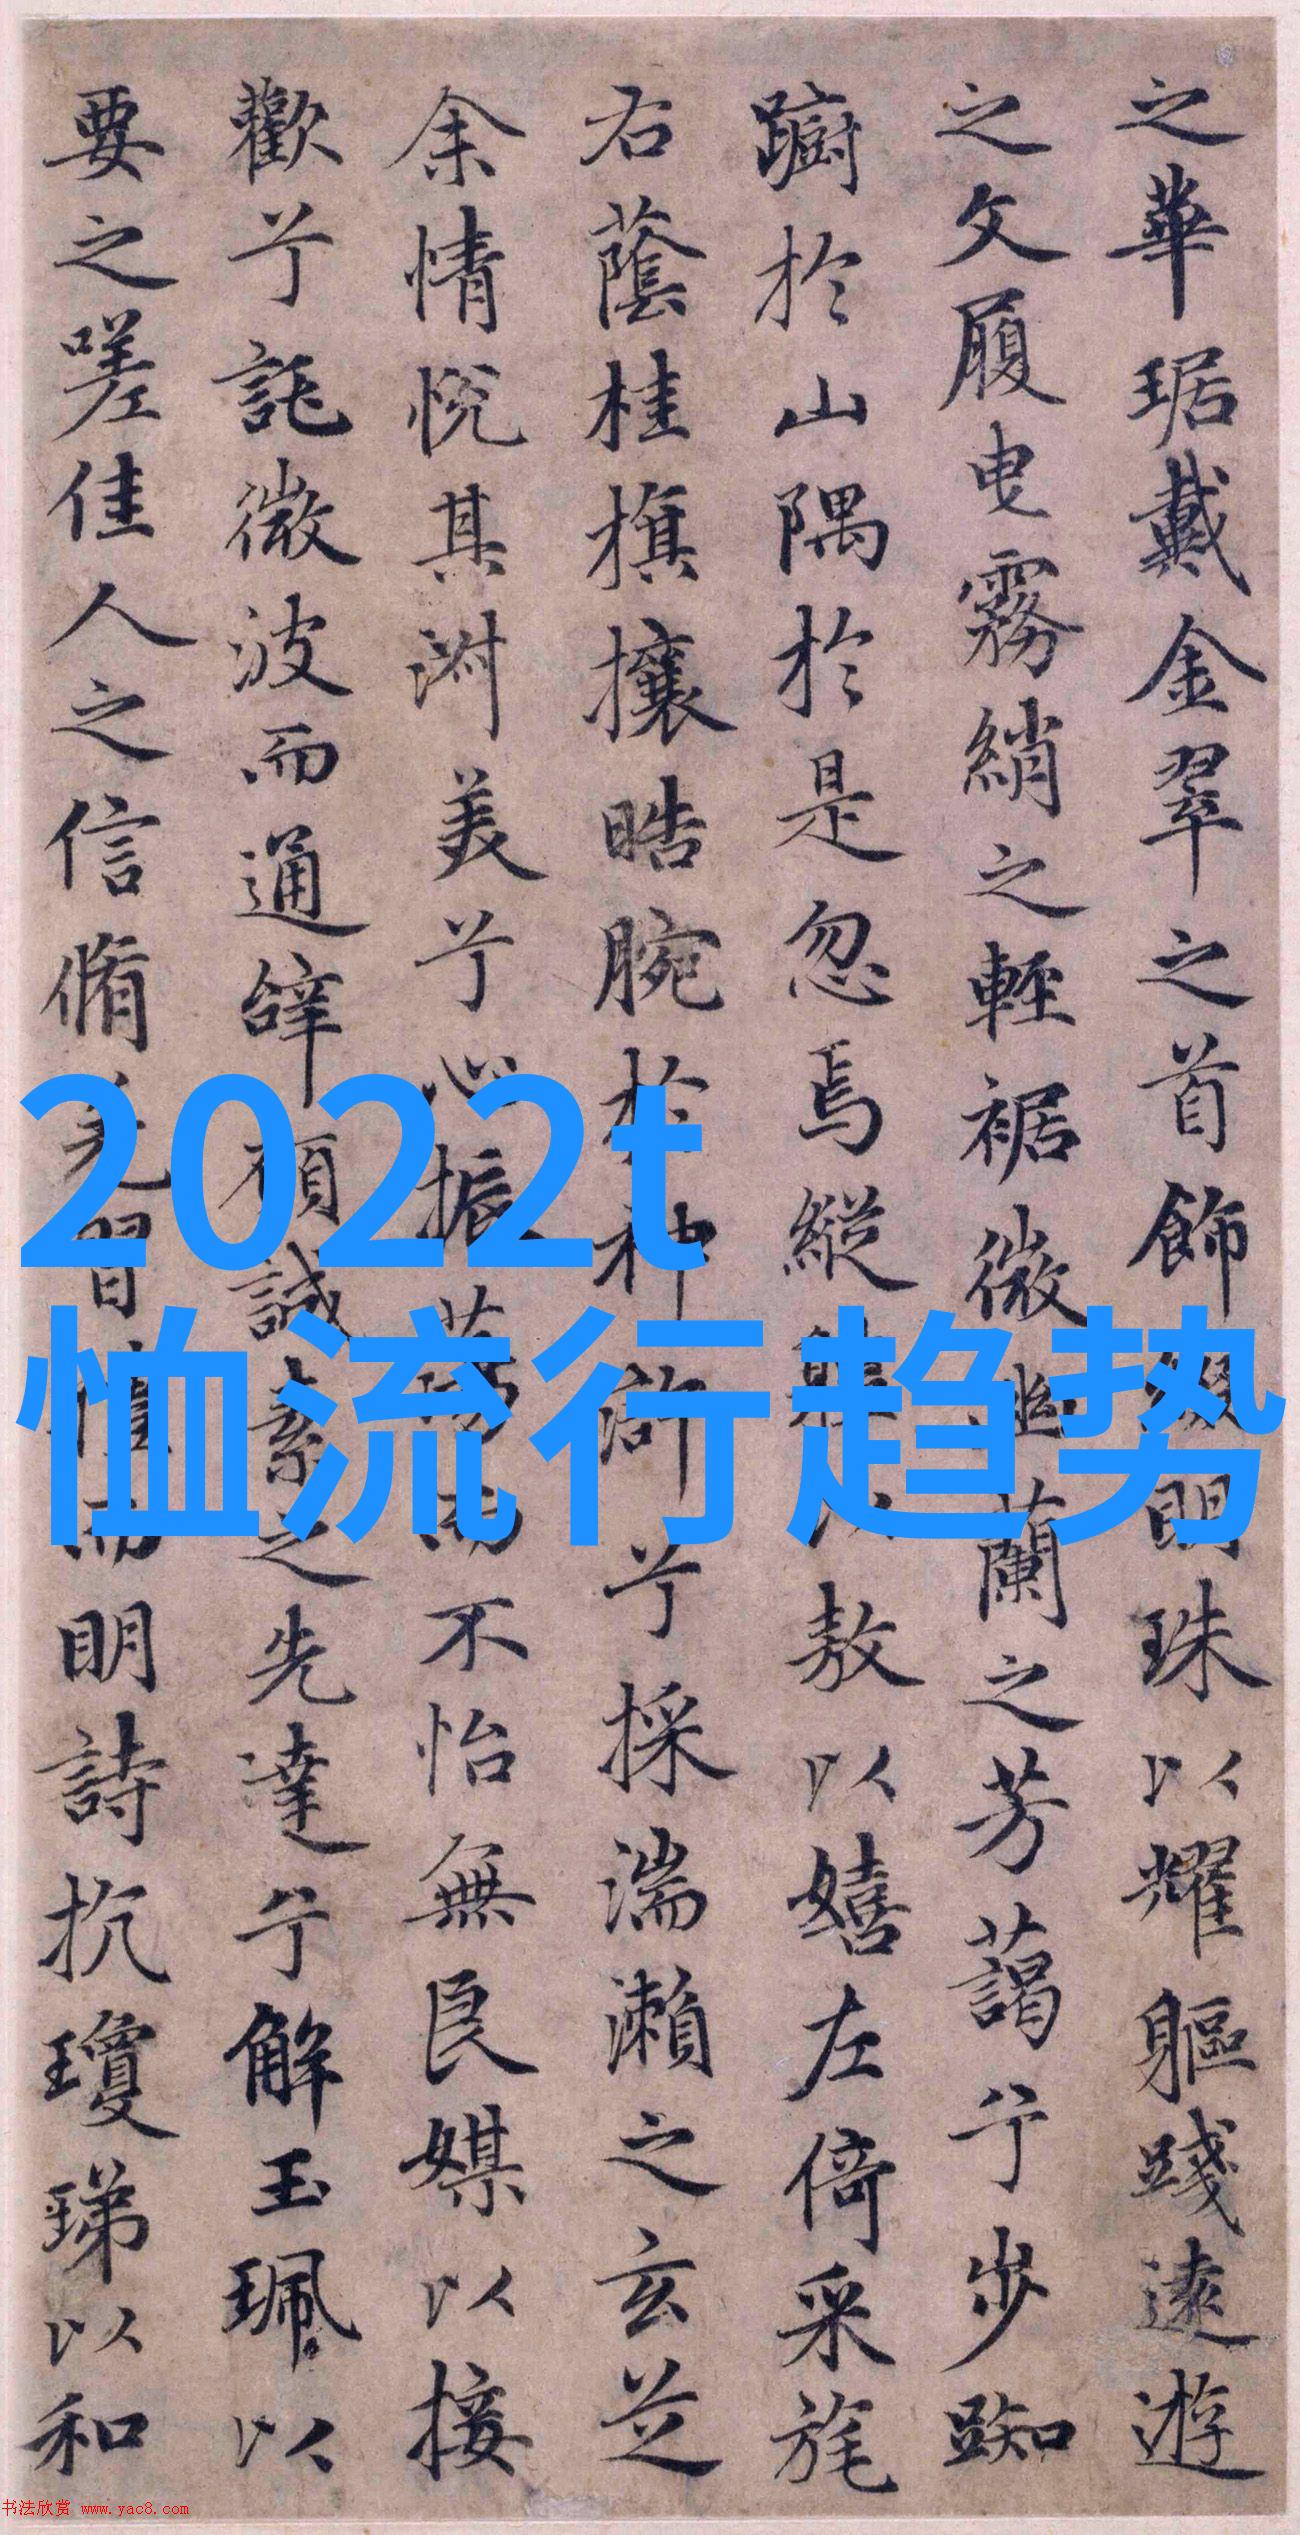 之華琚戴金翠之首飾綴明珠以耀軀踐遠遊
之文履曳霧綃之輕裾微幽蘭之芳藹兮步踟
蹰於山隅於是忽焉縱體以敖以嬉左倚采旄
右蔭桂旗攘晧腕於神滸兮採湍瀨之玄芝
余情悅其淑美兮心振蕩而不怡無良媒以接
歡兮託微波而通辭願誠素之先達兮解玉珮以
要之嗟佳人之信脩羌習禮而明詩抗瓊珶以和
2022t
恤流行趋势
书法欣赏 www.yac8.com